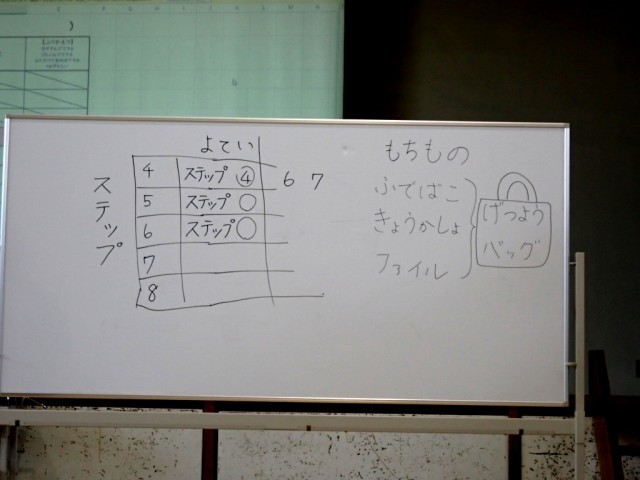 よてい
ステップ
4 ステップ ④
5 ステップ ○
6 ステップ ○
7
8
6 7
もちもの
ふでばこ
きょうかしょ
ファイル
げつよう
バッグ